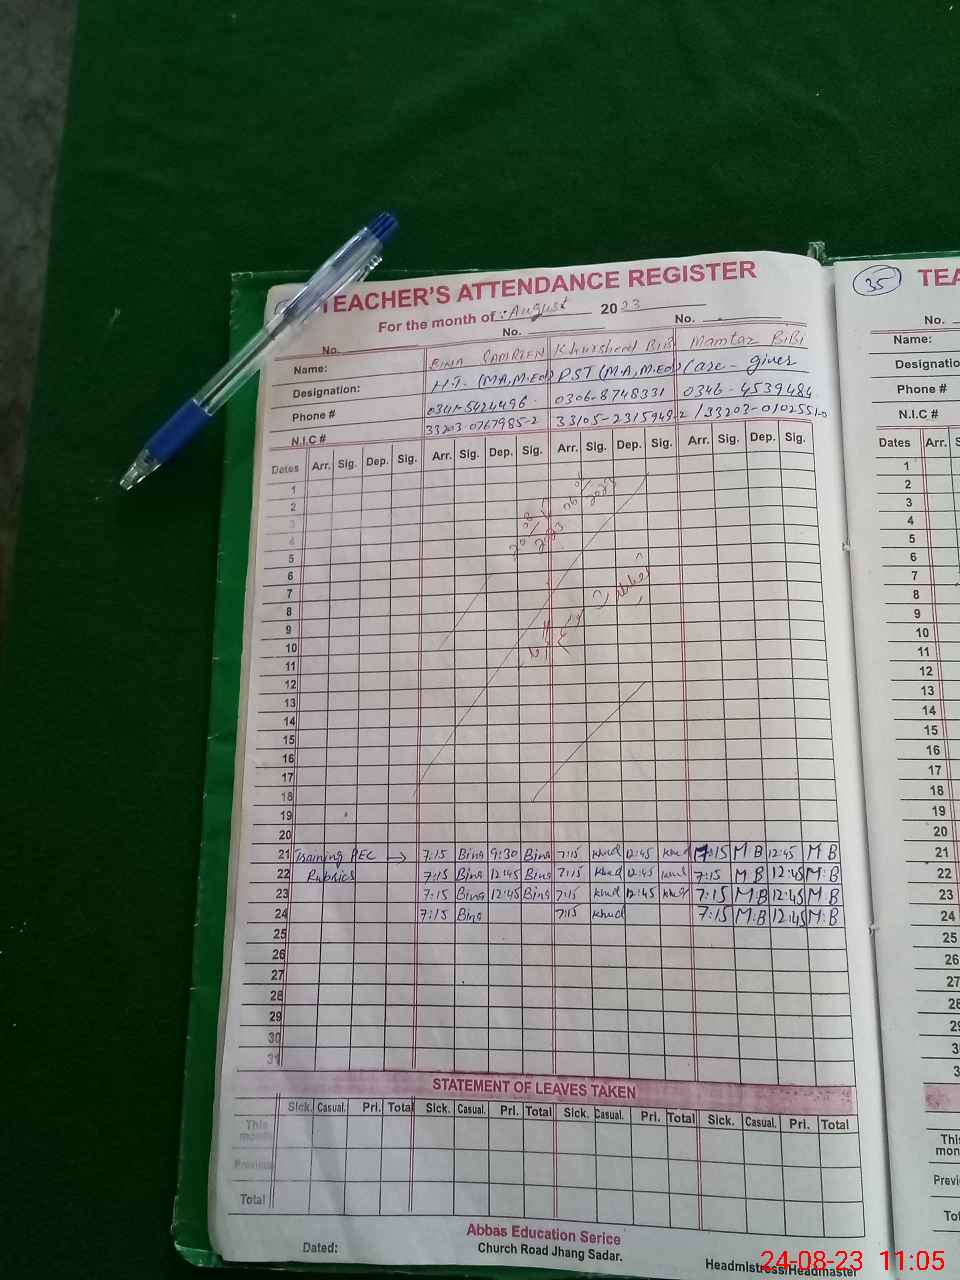 TEACHER'S ATTENDANCE REGISTER
For the month of :- August 2023
No. No. No.
Name: BINA Khursheed BiBi Mamtaz BiBi
Designation: H.T. (M.A, M.Ed) PST (M.A, M.Ed) Care - giver
Phone # 0341-5424496 0306-8748331 0346-4539484
N.I.C # 33203-0767985-2 33105-2315949-2 33203-0102551-0
Dates Arr. Sig. Dep. Sig. Arr. Sig. Dep. Sig. Arr. Sig. Dep. Sig. Arr. Sig. Dep. Sig.
1
2
3
4
5
6
7
8
9
10
11
12
13
14
15
16
17
18
19
20
21 Training PEC → 7:15 Bina 9:30 Bina 7:15 khud 12:45 khud 7:15 M B 12:45 M B
22 Rubrics 7:15 Bina 12:45 Bina 7:15 khud 12:45 khud 7:15 M B 12:45 M:B
23 7:15 Bina 12:45 Bina 7:15 khud 12:45 khud 7:15 M:B 12:45 M:B
24 7:15 Bina 7:15 khud 7:15 M:B 12:45 M:B
25
26
27
28
29
30
31
STATEMENT OF LEAVES TAKEN
Sick. Casual. Pri. Total Sick. Casual. Pri. Total Sick. Casual. Pri. Total Sick. Casual. Pri. Total
This month
Previous
Total
Abbas Education Serice
Dated: Church Road Jhang Sadar.
Headmistress/Headmaster
35 TEA
No.
Name:
Designation
Phone #
N.I.C #
Dates Arr. S
1
2
3
4
5
6
7
8
9
10
11
12
13
14
15
16
17
18
19
20
21
22
23
24
25
26
27
28
29
3
3
This
mon
Previ
Tot
24-08-23 11:05